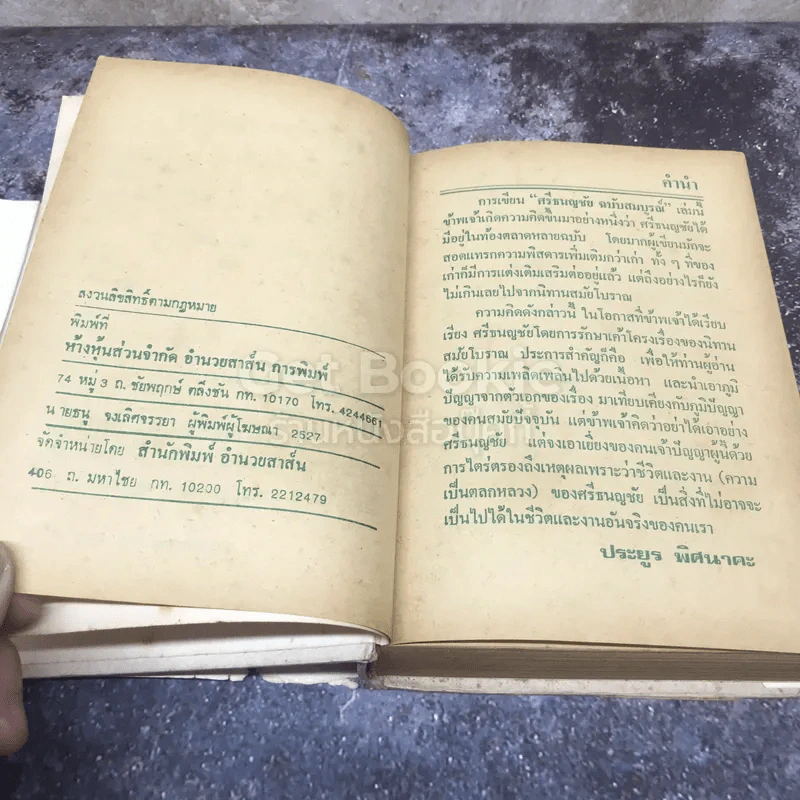 สงวนลิขสิทธิ์ตามกฎหมาย
พิมพ์ที่
ห้างหุ้นส่วนจำกัด อำนวยสาส์น การพิมพ์
74 หมู่ 3 ถ. ชัยพฤกษ์ ตลิ่งชัน กท. 10170 โทร. 4244661
นายธนู จงเลิศจรรยา ผู้พิมพ์ผู้โฆษณา 2527
จัดจำหน่ายโดย สำนักพิมพ์ อำนวยสาส์น
406 ถ. มหาไชย กท. 10200 โทร. 2212479
คำนำ
การเขียน "ศรีธนญชัย ฉบับสมบูรณ์" เล่มนี้
ข้าพเจ้าเกิดความคิดขึ้นมาอย่างหนึ่งว่า ศรีธนญชัยได้
มีอยู่ในท้องตลาดหลายฉบับ โดยมากผู้เขียนมักจะ
สอดแทรกความพิสดารเพิ่มเติมกว่าเก่า ทั้ง ๆ ที่ของ
เก่าก็มีการแต่งเติมเสริมต่ออยู่แล้ว แต่ถึงอย่างไรก็ยัง
ไม่เกินเลยไปจากนิทานสมัยโบราณ
ความคิดดังกล่าวนี้ ในโอกาสที่ข้าพเจ้าได้เรียบ
เรียง ศรีธนญชัยโดยการรักษาเค้าโครงเรื่องของนิทาน
สมัยโบราณ ประการสำคัญก็คือ เพื่อให้ท่านผู้อ่าน
ได้รับความเพลิดเพลินไปด้วยเนื้อหา และนำเอาภูมิ
ปัญญาจากตัวเอกของเรื่อง มาเทียบเคียงกับภูมิปัญญา
ของคนสมัยปัจจุบัน แต่ข้าพเจ้าคิดว่าอย่าได้เอาอย่าง
ศรีธนญชัย แต่จงเอาเยี่ยงของคนเจ้าปัญญาผู้นี้ด้วย
การไตร่ตรองถึงเหตุผลเพราะว่าชีวิตและงาน (ความ
เป็นตลกหลวง) ของศรีธนญชัย เป็นสิ่งที่ไม่อาจจะ
เป็นไปได้ในชีวิตและงานอันจริงของคนเรา
ประยูร พิศนาคะ
Get Bookie